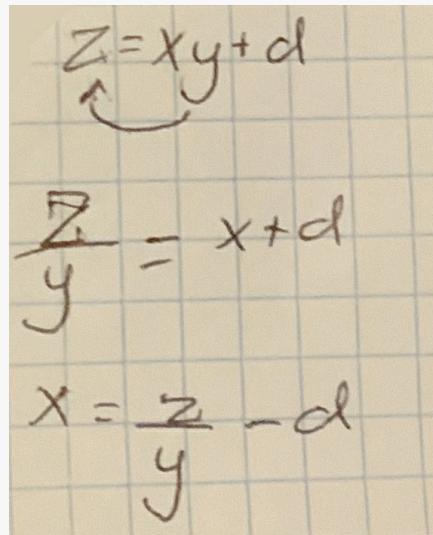 z=xy+d
z/y = x+d
x = z/y - d